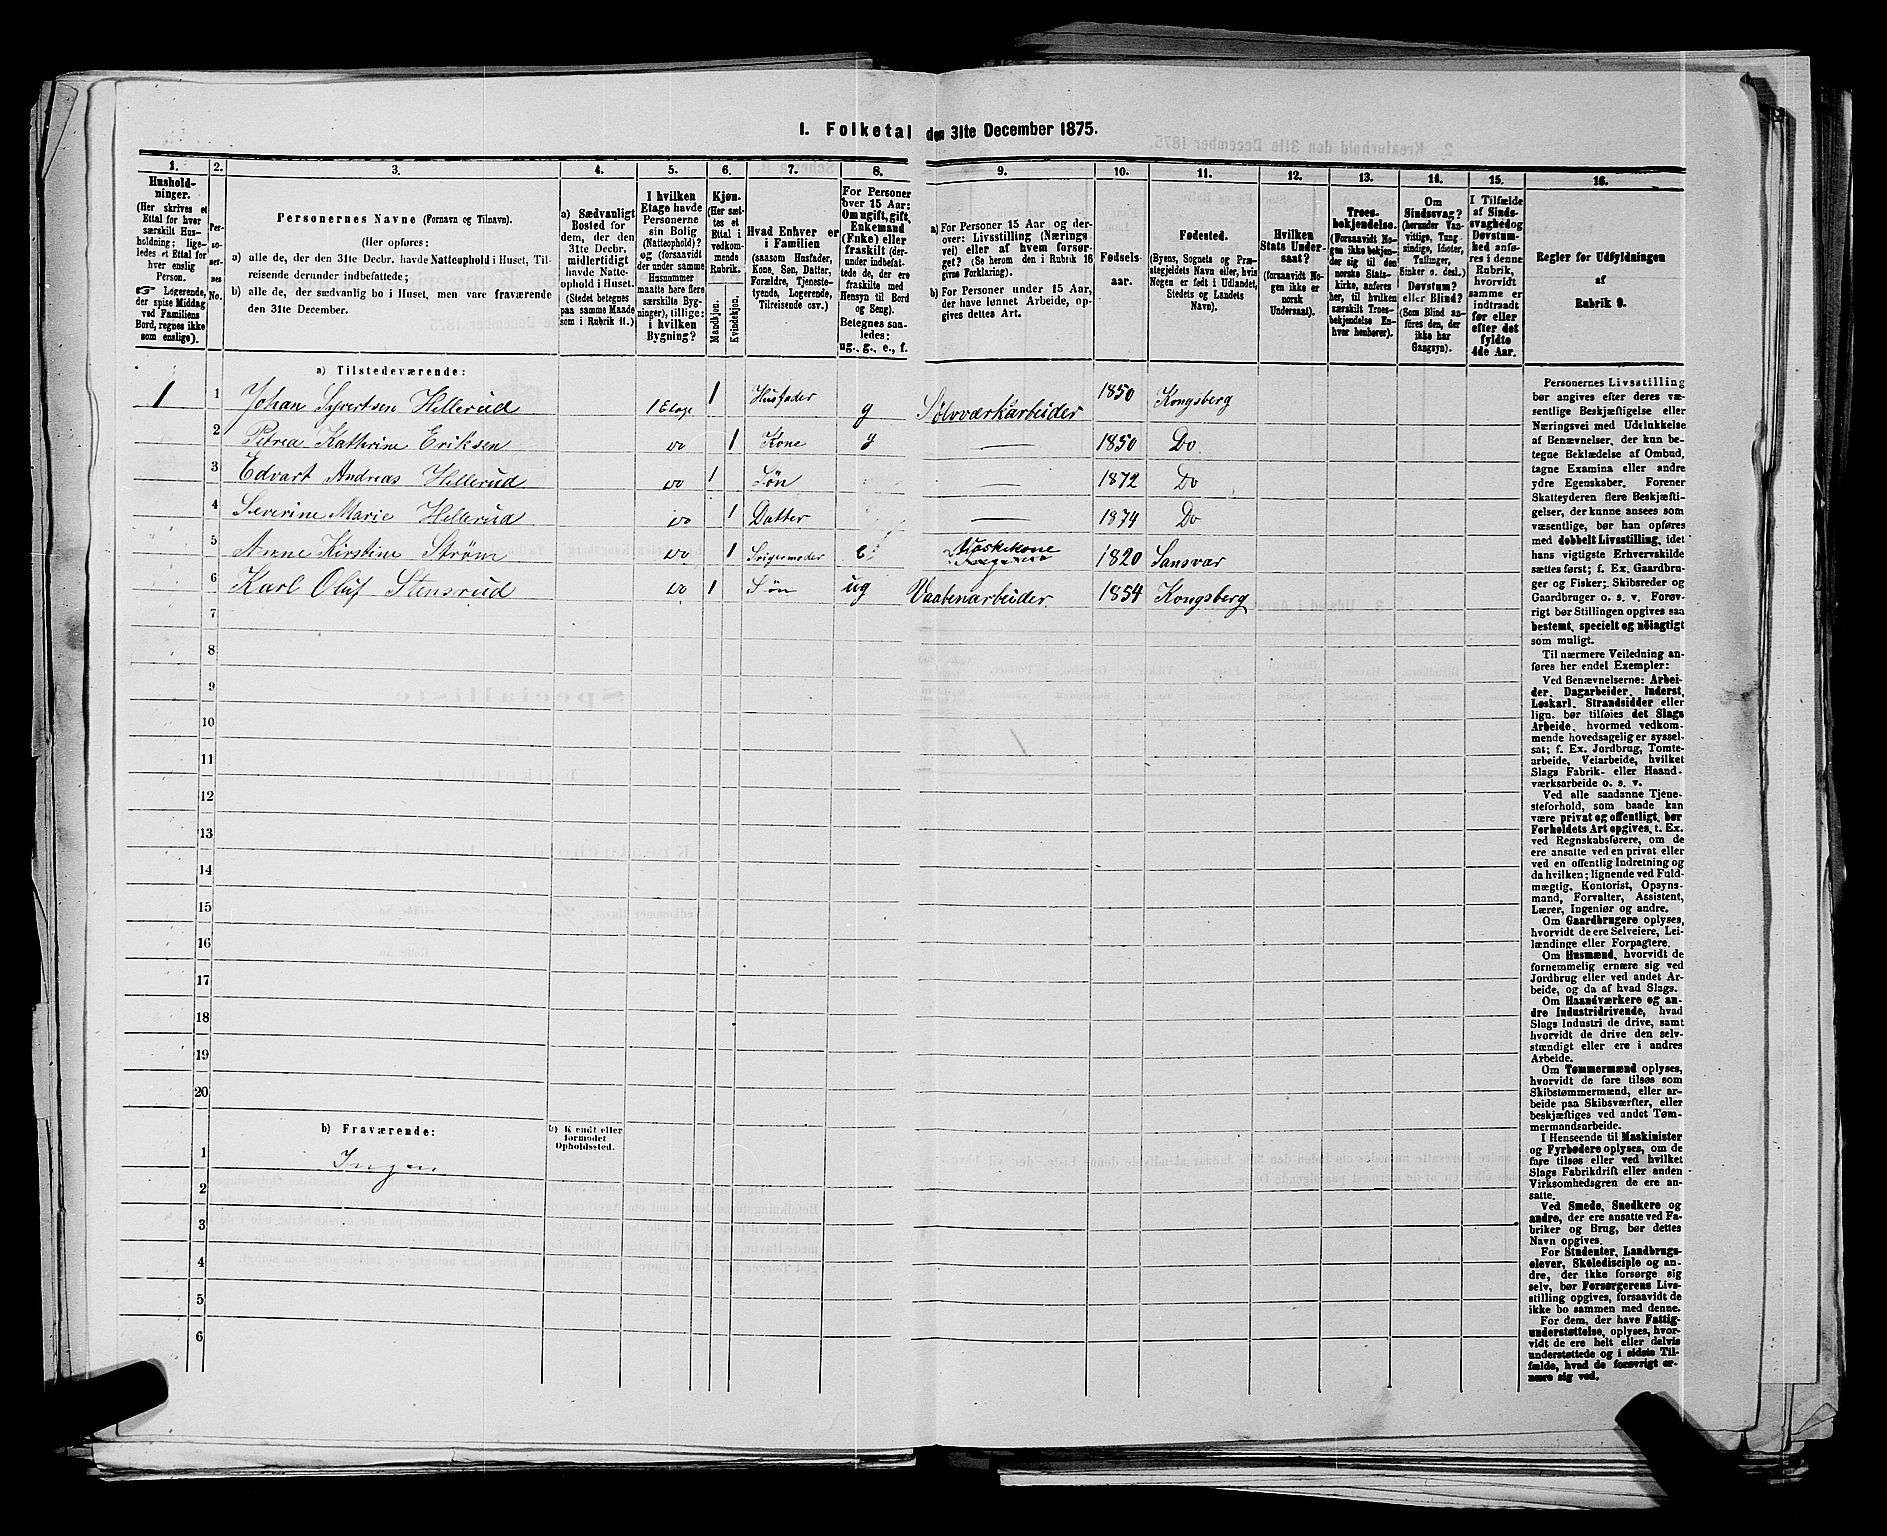 I. Folketal den 31te December 1875.
1. 2. 3. 4. 5. 6. 7. 8. 9. 10. 11. 12. 13. 14. 15. 16.
Hushold-
ninger.
(Her skrives et
Ettal for hver
særskilt Hus-
holdning; lige-
ledes et Ettal for
hver enslig
Person.
☞ Logerende,
der spise Middag
ved Familiens
Bord, regnes ikke
som enslige).
Per-
so-
ner-
nes
No.
Personernes Navne (Fornavn og Tilnavn).
(Her opføres:
a) alle de, der den 31te Decbr. havde Natteophold i Huset, Til-
reisende derunder indbefattede;
b) alle de, der sædvanlig bo i Huset, men vare fraværende
den 31te December.
a) Sædvanligt
Bosted for
dem, der den
31te Decbr.
midlertidigt
havde Natte-
ophold i Huset.
(Stedet betegnes
paa samme Maade
som i Rubrik 11.)
I hvilken
Etage havde
Personerne
sin Bolig
(Natteophold)?
og (forsaavidt
der under samme
Husnummer
maatte høre flere
særskilte Byg-
ninger), tillige:
i hvilken
Bygning?
Kjøn.
(Her sæt-
tes et
Ettal i
vedkom-
mende
Rubrik.
Mandkjøn.
Kvindekjøn.
Hvad Enhver er
i Familien
(saasom Husfader,
Kone, Søn, Datter,
Forældre, Tjeneste-
tyende, Logerende,
Tilreisende osv.)
For Personer
over 15 Aar:
Om ugift, gift,
Enkemand
(Enke) eller
fraskilt (der-
under indbefat-
tede de, der ere
fraskilte med
Hensyn til Bord
og Seng).
Betegnes saa-
ledes:
ug., g., e., f.
a) For Personer 15 Aar og der-
over: Livsstilling (Nærings-
vei) eller af hvem forsør-
get? (Se herom den i Rubrik 16
givne Forklaring).
b) For Personer under 15 Aar,
der have lønnet Arbeide, op-
gives dettes Art.
Fødsels-
aar.
Fødested.
(Byens, Sognets og Præ-
stegjeldets Navn eller, hvis
Nogen er født i Udlandet,
Stedets og Landets
Navn).
Hvilken
Stats Under-
saat?
(forsaavidt No-
gen ikke er
norsk
Undersaat).
Troes-
bekjendelse.
(Forsaavidt No-
gen ikke bekjen-
der sig til den
norske Stats-
kirke, anføres
her, til hvilken
særskilt Troes-
bekjendelse En-
hver henhører).
Om
Sindssvag?
(herunder Van-
vittige, Tung-
sindige, Idioter,
Tullinger,
Sinker o. desl.)
Døvstum?
eller Blind?
(Som Blind an-
føres den, der
ikke har
Gangsyn).
I Tilfælde
af Sinds-
svaghed og
Døvstum-
hed anfø-
res i denne
Rubrik,
hvorvidt
samme er
indtraadt
før eller
efter det
fyldte
4de Aar.
Regler for Udfyldningen
af
Rubrik 9.
a) Tilstedeværende:
1 1 Johan Syvertsen Hillerud 1 Etage 1 Husfader g Sølvværksarbeider 1850 Kongsberg
2 Petrea Kathrine Eriksen Do 1 Kone g — 1850 Do
3 Edvart Andreas Hillerud Do 1 Søn — 1872 Do
4 Severine Marie Hillerud Do 1 Datter — 1874 Do
5 Anne Kirstine Strøm Do 1 Svigermoder e Vaskekone 1820 Sansvær
6 Karl Oluf Stensrud Do 1 Søn ug Vaabenarbeider 1854 Kongsberg
7
8
9
10
11
12
13
14
15
16
17
18
19
20
b) Fraværende:
b) Kjendt eller
formodet
Opholdssted.
1 Ingen
2
3
4
5
6
Personernes Livsstilling
bør angives efter deres væ-
sentlige Beskjæftigelse eller
Næringsvei med Udelukkelse
af Benævnelser, der kun be-
tegne Beklædelse af Ombud,
tagne Examina eller andre
ydre Egenskaber. Forener
Skatteyderen flere Beskjæfti-
gelser, der kunne ansees som
væsentlige, bør han opføres
med dobbelt Livsstilling, idet
hans vigtigste Erhvervskilde
sættes først; f. Ex. Gaardbru-
ger og Fisker; Skibsreder og
Gaardbruger o. s. v. Forøv-
rigt bør Stillingen opgives saa
bestemt, specielt og nöiagtigt
som muligt.
Til nærmere Veiledning an-
føres her endel Exempler:
Ved Benævnelserne: Arbei-
der, Dagarbeider, Inderst,
Løskarl, Strandsidder eller
lign. bør tilføies det Slags
Arbeide, hvormed vedkom-
mende hovedsagelig er syssel-
sat; f. Ex. Jordbrug, Tomte-
arbeide, Veiarbeide, hvilket
Slags Fabrik- eller Haand-
værksarbeide o. s. v.
Ved alle saadanne Tjene-
steforhold, som baade kan
være privat og offentligt, bør
Forholdets Art opgives, t. Ex.
ved Regnskabsførere, om de
ere ansatte ved en privat eller
ved en offentlig Indretning og
da hvilken; lignende ved Fuld-
mægtig, Kontorist, Opsyns-
mand, Forvalter, Assistent,
Lærer, Ingeniør og andre.
Om Gaardbrugere oplyses,
hvorvidt de ere Selveiere, Lei-
lændinge eller Forpagtere.
Om Husmænd, hvorvidt de
fornemmelig ernære sig ved
Jordbrug eller ved andet Ar-
beide, og da af hvad Slags.
Om Haandværkere og an-
dre Industridrivende, hvad
Slags Industri de drive, samt
hvorvidt de drive den selv-
stændigt eller ere i andres
Arbeide.
Om Tømmermænd oplyses,
hvorvidt de fare tilsøs som
Skibstømmermænd, eller ar-
beide paa Skibsværfter, eller
beskjæftiges ved andet Tøm-
mermandsarbeide.
I Henseende til Maskinister
og Fyrbødere oplyses, om de
fare tilsøs eller ved hvilket
Slags Fabrikdrift eller anden
Virksomhedsgren de ere an-
satte.
Ved Smede, Snedkere og
andre, der ere ansatte ved Fa-
briker og Brug, bør dettes
Navn opgives.
For Studenter, Landbrugs-
elever, Skoledisciple og an-
dre, der ikke forsørge sig
selv, bør Forsørgerens Livs-
stilling opgives, forsaavidt de
ikke bo sammen med denne.
For dem, der have Fattig-
understøttelse, oplyses, hvor-
vidt de ere helt eller delvis
understøttede og i sidste Til-
fælde, hvad de forøvrigt er-
nære sig ved.